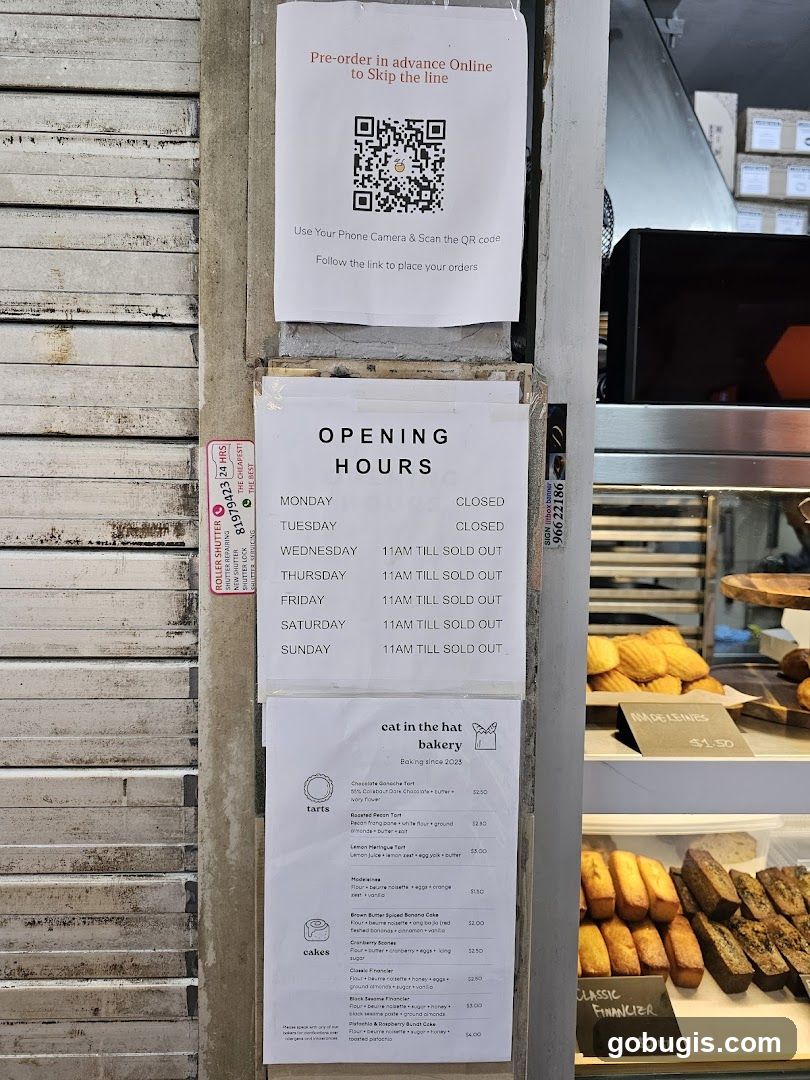 Pre-order in advance Online
to Skip the line
Use Your Phone Camera & Scan the QR code
Follow the link to place your orders
OPENING
HOURS
MONDAY CLOSED
TUESDAY CLOSED
WEDNESDAY 11AM TILL SOLD OUT
THURSDAY 11AM TILL SOLD OUT
FRIDAY 11AM TILL SOLD OUT
SATURDAY 11AM TILL SOLD OUT
SUNDAY 11AM TILL SOLD OUT
ROLLER SHUTTER
81979423 24 HRS
THE CHEAPEST!
THE BEST
SHUTTER REPAIRING
NEW SHUTTER
SHUTTER LOCK
SHUTTER SERVICING
SIGN
966 22186
cat in the hat
bakery
Baking since 2023
tarts
Chocolate Ganache Tart
55% Callebaut Dark Chocolate + butter +
ivory flower $2.50
Roasted Pecan Tart
Pecan frangipane + white flour + ground
almonds + butter + salt $2.80
Lemon Meringue Tart
Lemon juice + lemon zest + egg yolk + butter $3.00
Madeleines
Flour + beurre noisette + eggs + orange
zest + vanilla $1.50
cakes
Brown Butter Spiced Banana Cake
Flour + beurre noisette + ang ba jio (red
fleshed bananas + cinnamon + vanilla $2.00
Cranberry Scones
Flour + butter + cranberry + eggs + icing
sugar $2.50
Classic Financier
Flour + beurre noisette + honey + eggs +
ground almonds + sugar + vanilla $2.80
Black Sesame Financier
Flour + beurre noisette + sugar + honey +
black sesame paste + ground almonds $3.00
Pistachio & Raspberry Bundt Cake
Flour + beurre noisette + sugar + honey +
toasted pistachio $4.00
Please speak with any of our
bakers for clarifications over
allergens and intolerances
MADELEINES
$1.50
CLASSIC
FINANCIER
gobugis.com